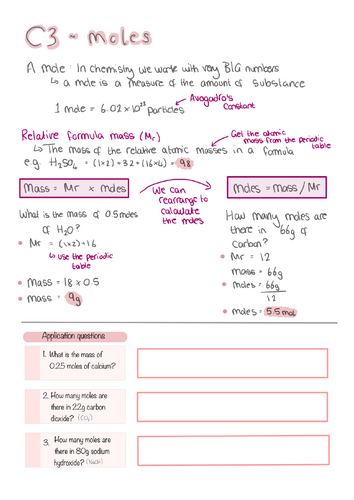 C3 - moles
A mole : In chemistry we work with very BIG numbers
↳ a mole is a measure of the amount of substance
1 mole = 6.02 x 10²³ particles
Avogadro's
Constant
Relative formula mass (Mr)
↳ The mass of the relative atomic masses in a formula
Get the atomic
mass from the periodic
table
e.g H₂SO₄ = (1x2)+32+(16x4) = 98
Mass = Mr x moles
We can
rearrange to
calculate
the moles
moles = mass / Mr
What is the mass of 0.5 moles
of H₂O?
• Mr = (1x2)+16
↳ use the periodic
table
• Mass = 18 x 0.5
• mass = 9g
How many moles are
there in 66g of
Carbon?
• Mr = 12
mass = 66g
• moles = 66g
12
• moles = 5.5 mol
Application questions
1. What is the mass of
0.25 moles of calcium?
2. How many moles are
there in 22g carbon
dioxide? (CO₂)
3. How many moles are
there in 80g sodium
hydroxide? (NaOH)